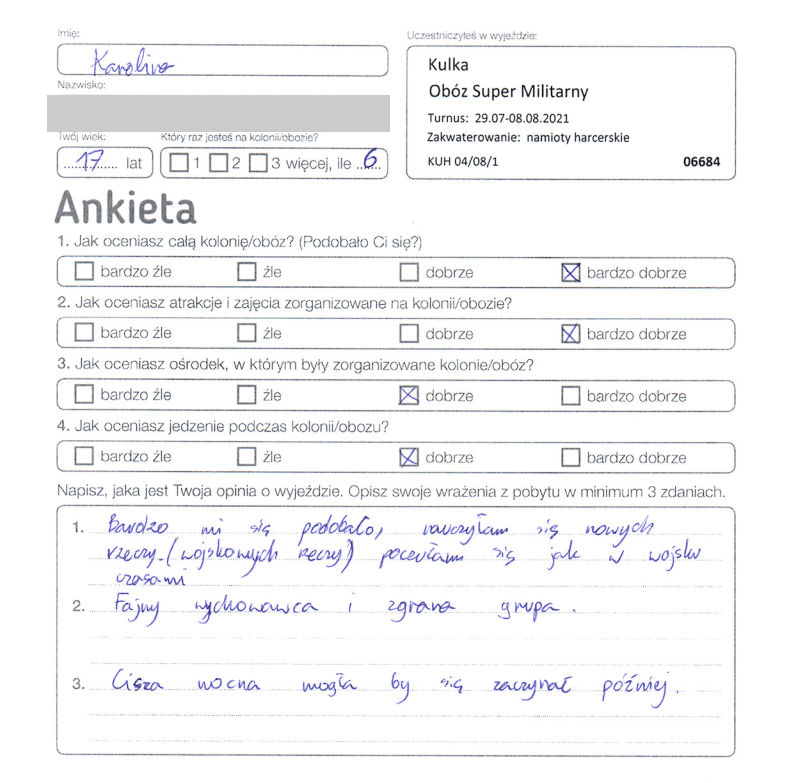 Imię:
Karolina
Nazwisko:
Twój wiek:
17 lat
Który raz jesteś na kolonii/obozie?
1 2 3 więcej, ile 6
Uczestniczyłeś w wyjeździe:
Kulka
Obóz Super Militarny
Turnus: 29.07-08.08.2021
Zakwaterowanie: namioty harcerskie
KUH 04/08/1 06684
Ankieta
1. Jak oceniasz całą kolonię/obóz? (Podobało Ci się?)
bardzo źle źle dobrze bardzo dobrze
2. Jak oceniasz atrakcje i zajęcia zorganizowane na kolonii/obozie?
bardzo źle źle dobrze bardzo dobrze
3. Jak oceniasz ośrodek, w którym były zorganizowane kolonie/obóz?
bardzo źle źle dobrze bardzo dobrze
4. Jak oceniasz jedzenie podczas kolonii/obozu?
bardzo źle źle dobrze bardzo dobrze
Napisz, jaka jest Twoja opinia o wyjeździe. Opisz swoje wrażenia z pobytu w minimum 3 zdaniach.
1. Bardzo mi się podobało, nauczyłam się nowych
rzeczy. (wojskowych rzeczy) poczułam się jak w wojsku
czasami
2. Fajny wychowawca i zgrana grupa.
3. Cisza nocna mogła by się zaczynać później.